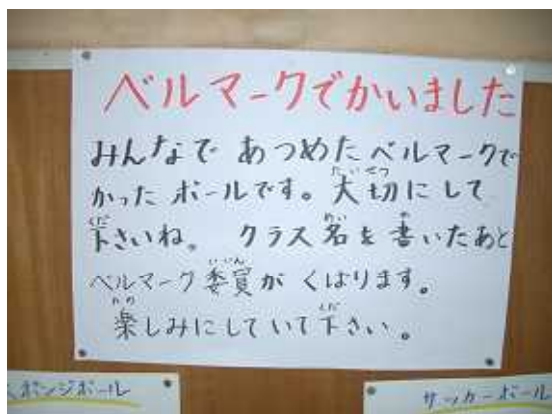 ベルマークでかいました
みんなで あつめた ベルマークで
かった ボールです。大切にして
下さいね。 クラス名を書いたあと
ベルマーク委員が くばります。
楽しみにしていて下さい。
スポンジボール
サッカーボール